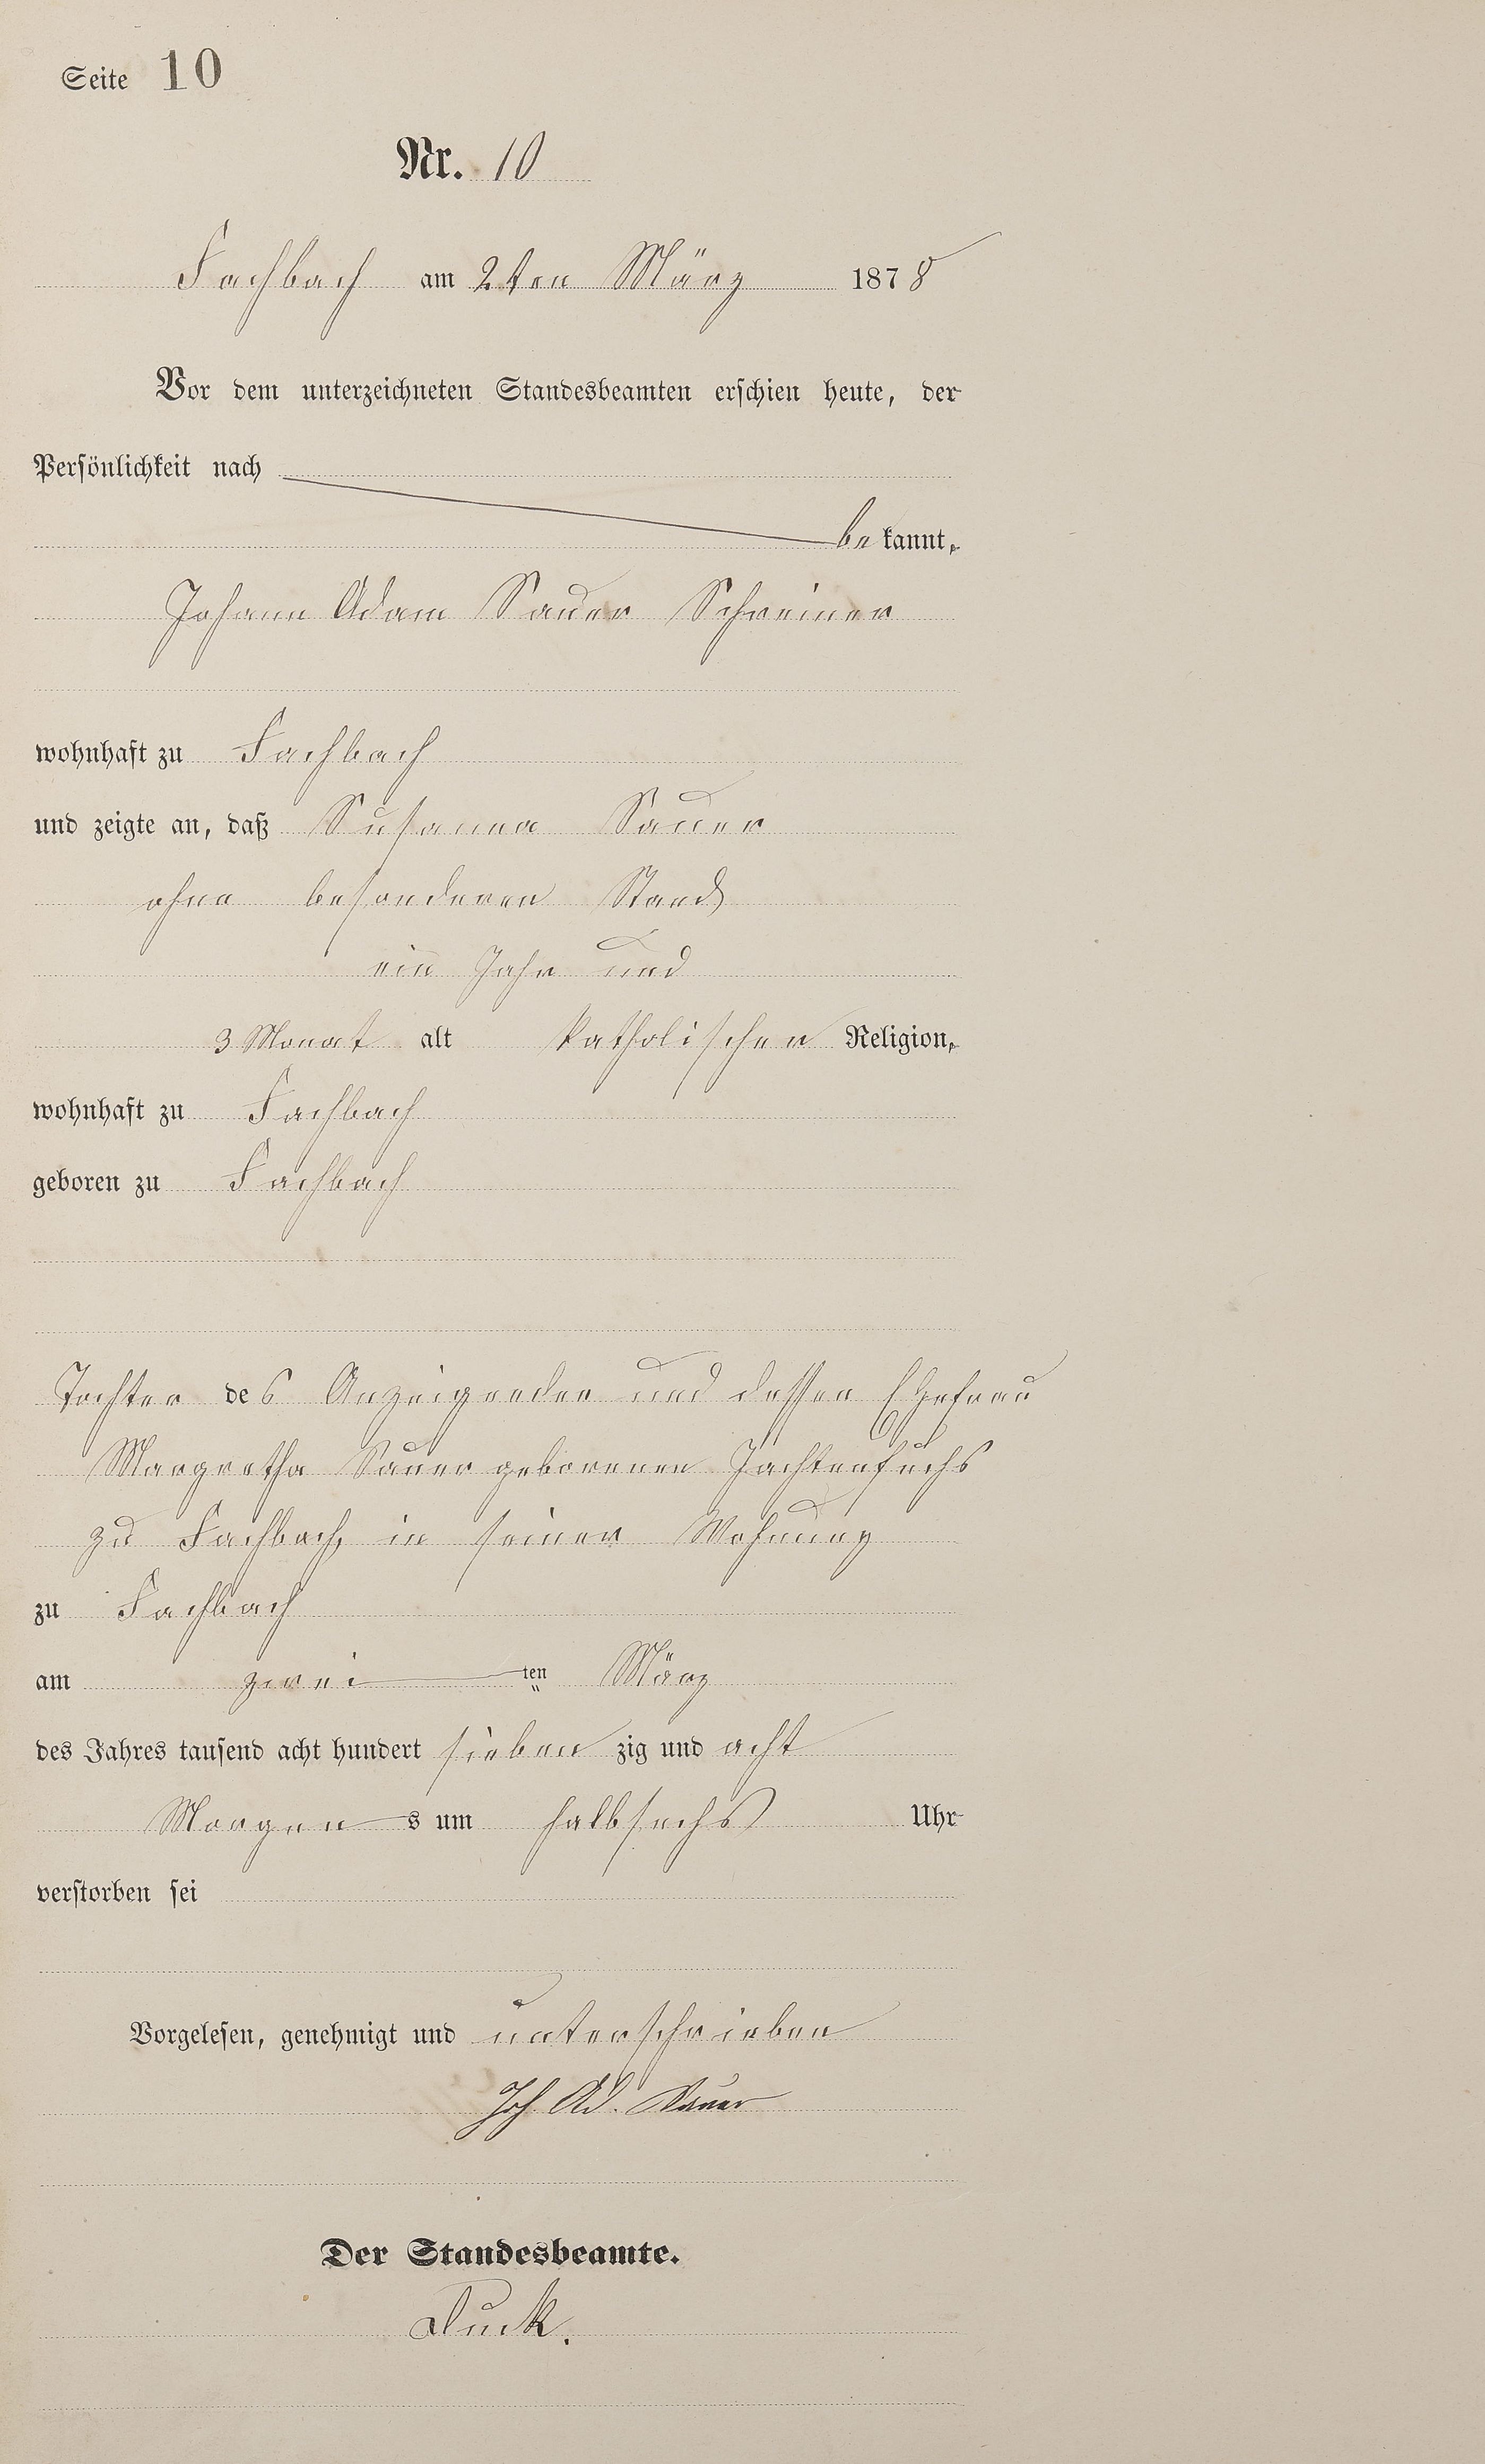 Seite 10
Nr. 10
Fachbach am 2ten März 1878
Vor dem unterzeichneten Standesbeamten erschien heute, der
Persönlichkeit nach
bekannt,
Johann Adam Sauer Schreiner
wohnhaft zu Fachbach
und zeigte an, daß Susanna Sauer
ohne besonderen Stand
ein Jahr und
3 Monat alt katholischer Religion,
wohnhaft zu Fachbach
geboren zu Fachbach
Tochter des Anzeigenden und dessen Ehefrau
Margretha Sauer geborenen Jachtenfuchs
zu Fachbach, in seiner Wohnung
zu Fachbach
am zwei ten März
des Jahres tausend acht hundert sieben zig und acht
Morgens um halbsechs Uhr
verstorben sei
Vorgelesen, genehmigt und unterschrieben
Joh. Ad. Sauer
Der Standesbeamte.
Duck.